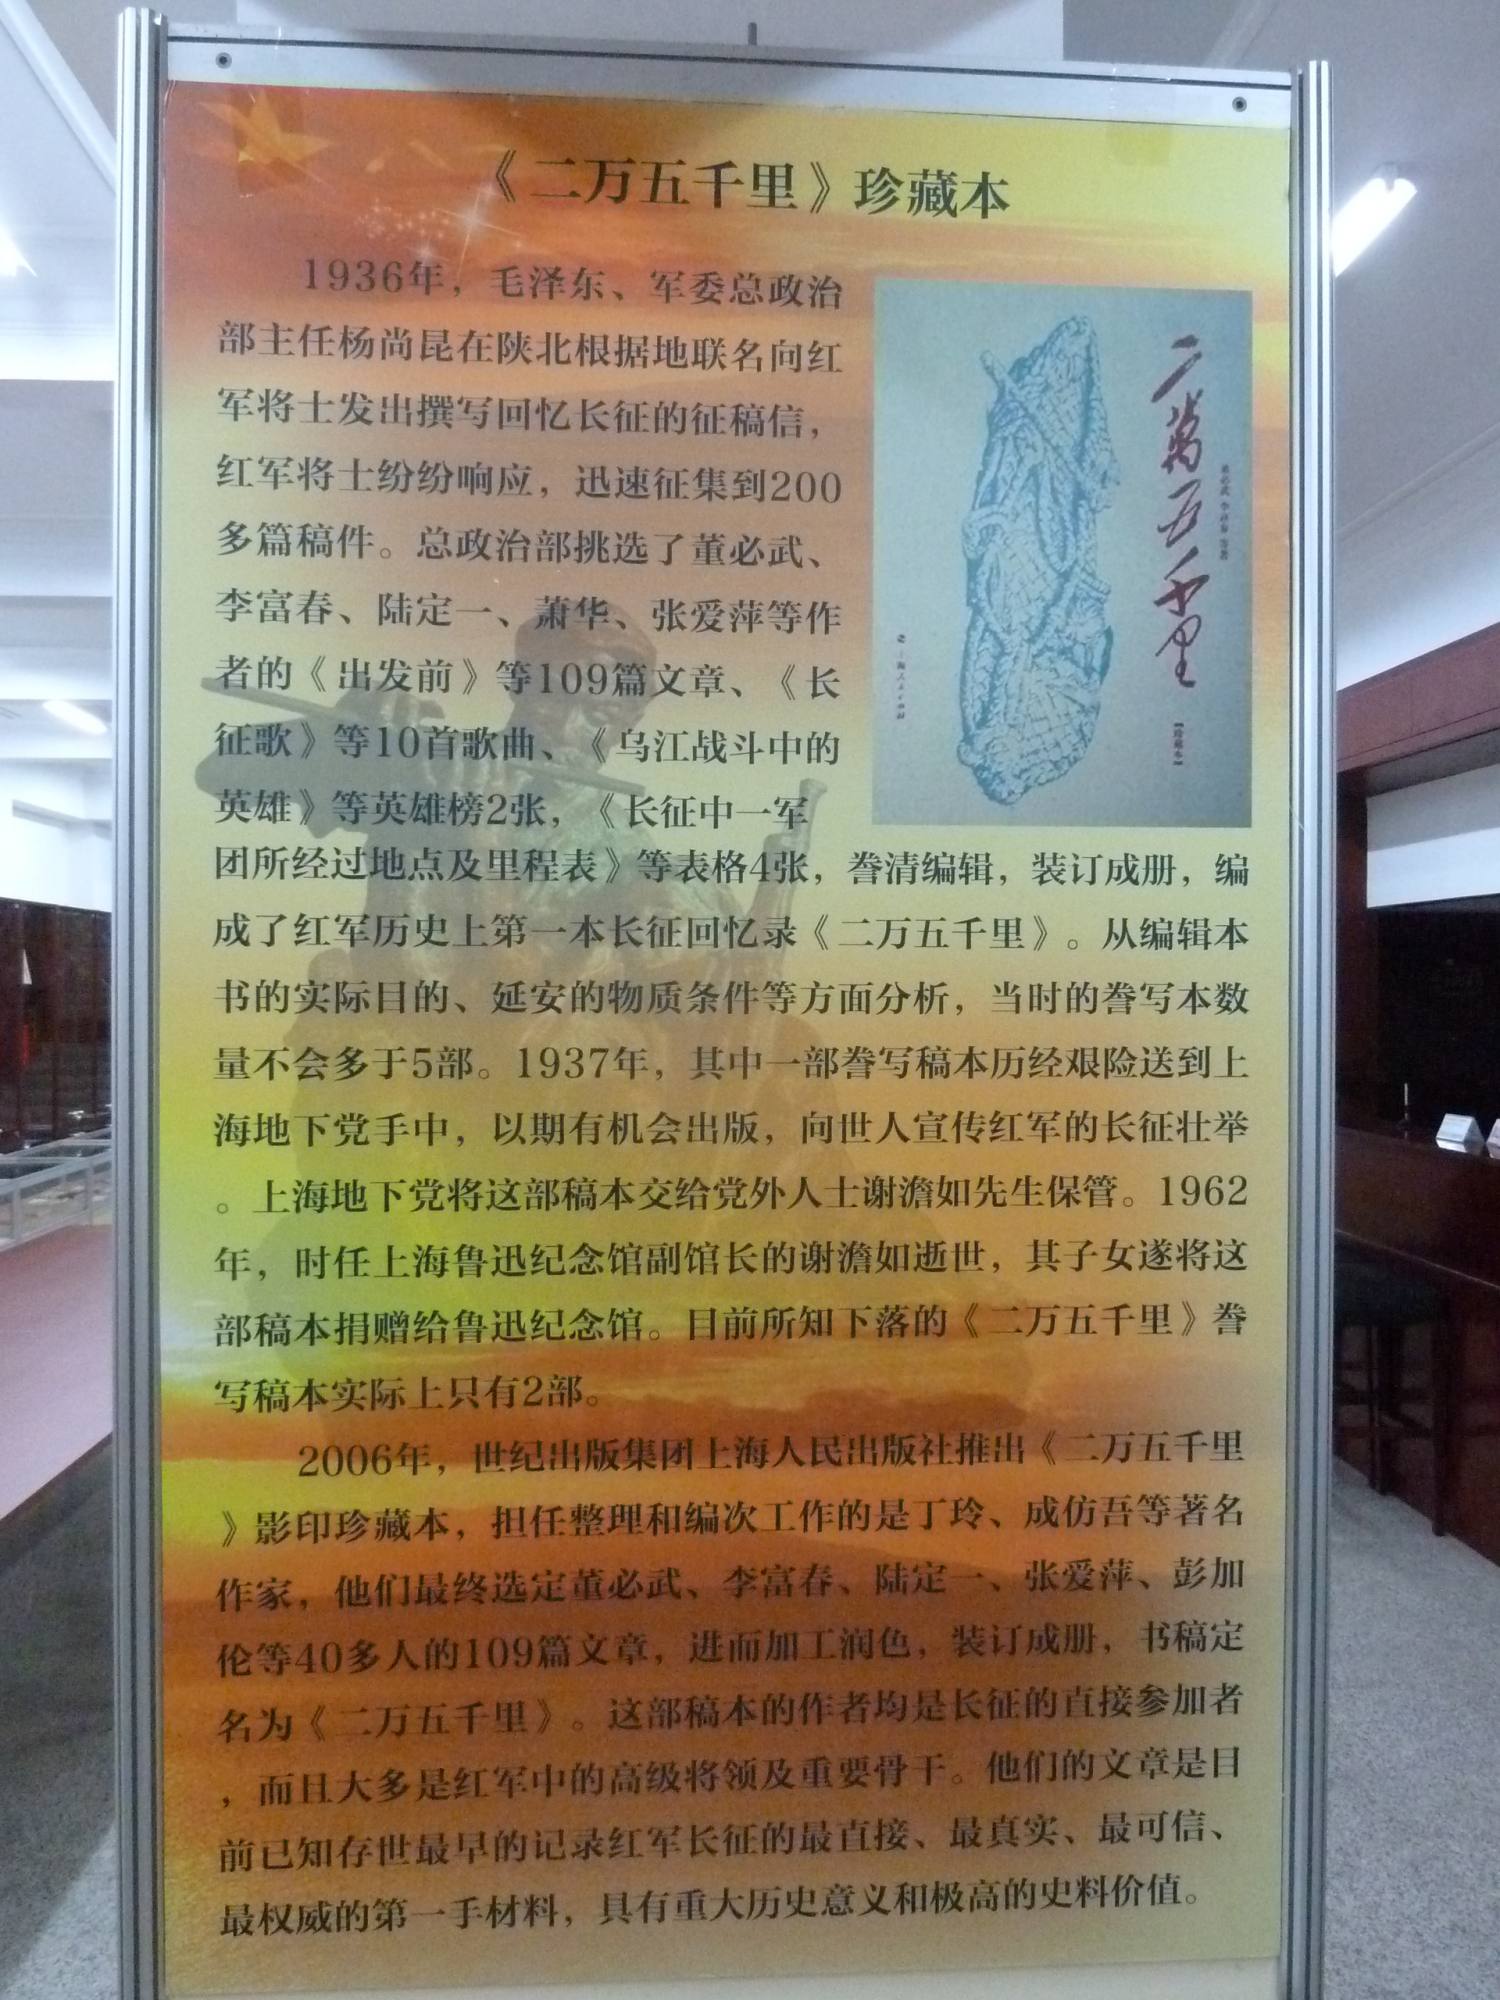 《二万五千里》珍藏本
1936年，毛泽东、军委总政治
部主任杨尚昆在陕北根据地联名向红
军将士发出撰写回忆长征的征稿信，
红军将士纷纷响应，迅速征集到200
多篇稿件。总政治部挑选了董必武、
李富春、陆定一、萧华、张爱萍等作
者的《出发前》等109篇文章、《长
征歌》等10首歌曲、《乌江战斗中的
英雄》等英雄榜2张，《长征中一军
团所经过地点及里程表》等表格4张，誊清编辑，装订成册，编
成了红军历史上第一本长征回忆录《二万五千里》。从编辑本
书的实际目的、延安的物质条件等方面分析，当时的誊写本数
量不会多于5部。1937年，其中一部誊写稿本历经艰险送到上
海地下党手中，以期有机会出版，向世人宣传红军的长征壮举
。上海地下党将这部稿本交给党外人士谢澹如先生保管。1962
年，时任上海鲁迅纪念馆副馆长的谢澹如逝世，其子女遂将这
部稿本捐赠给鲁迅纪念馆。目前所知下落的《二万五千里》誊
写稿本实际上只有2部。
2006年，世纪出版集团上海人民出版社推出《二万五千里
》影印珍藏本，担任整理和编次工作的是丁玲、成仿吾等著名
作家，他们最终选定董必武、李富春、陆定一、张爱萍、彭加
伦等40多人的109篇文章，进而加工润色，装订成册，书稿定
名为《二万五千里》。这部稿本的作者均是长征的直接参加者
，而且大多是红军中的高级将领及重要骨干。他们的文章是目
前已知存世最早的记录红军长征的最直接、最真实、最可信、
最权威的第一手材料，具有重大历史意义和极高的史料价值。
二萬五千里
董必武 李富春 等著
【珍藏本】
上海人民出版社